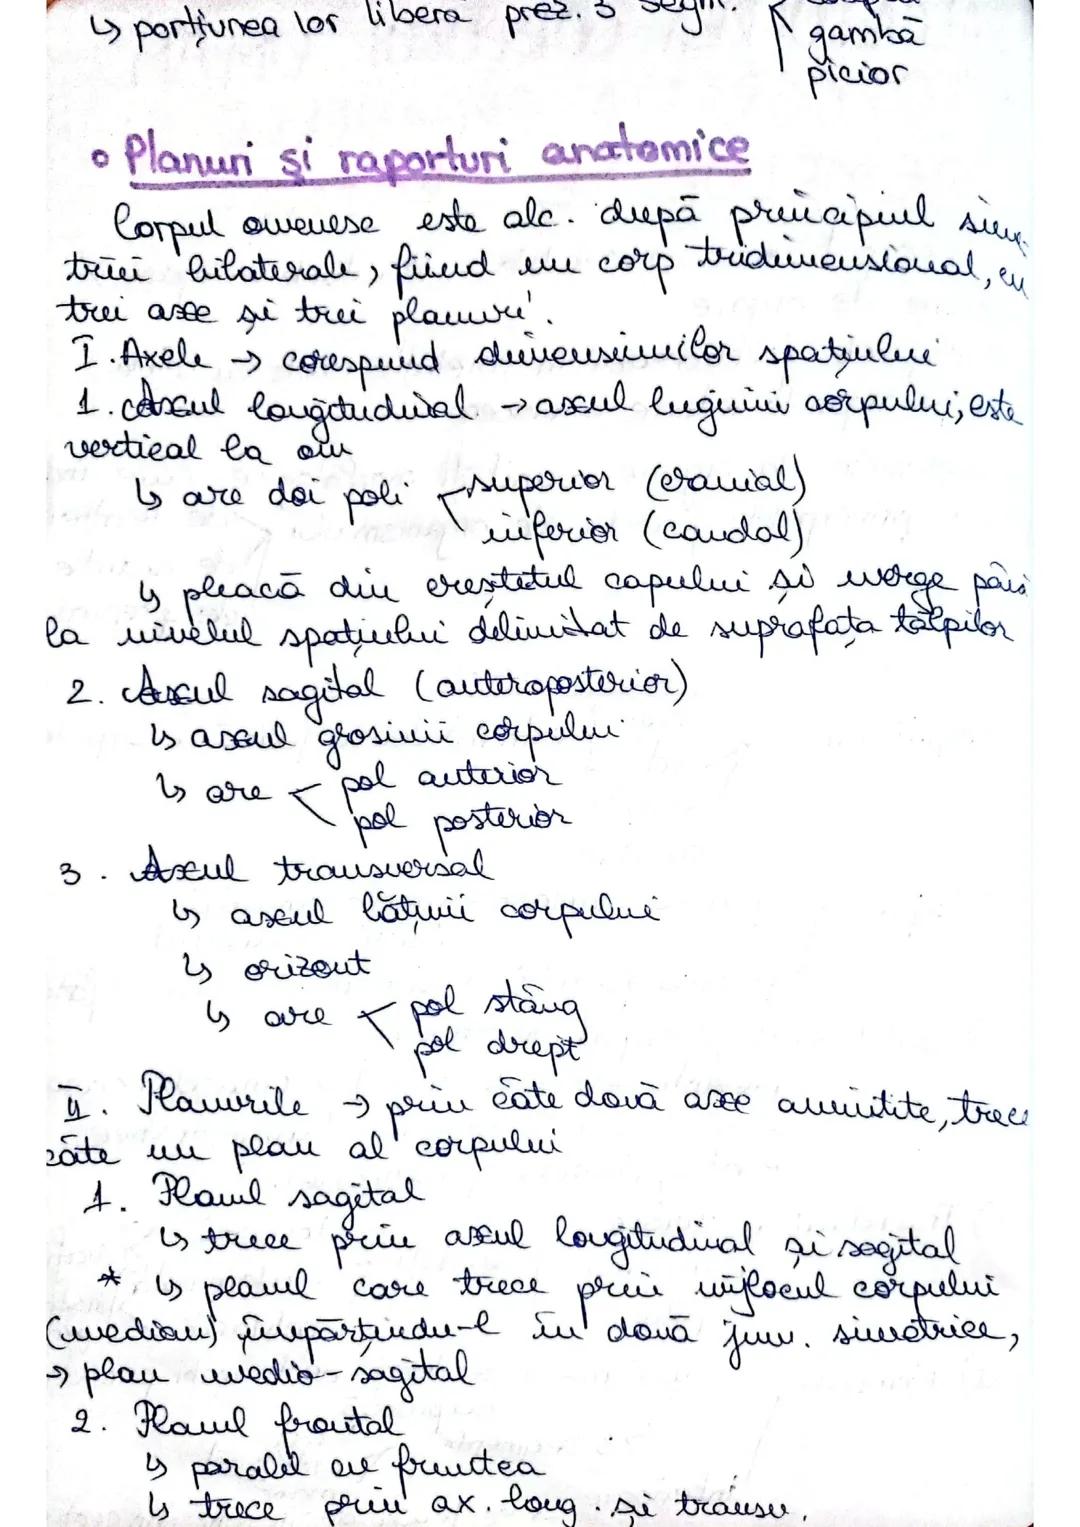 ↳ porțiunea lor liberă prez. 3 segm.
gambă
picior
• Planuri și raporturi anatomice
Corpul omenesc este alc. după principiul sim-
triei bilaterale, fiind un corp tridimensional, cu
trei axe și trei planuri.
I. Axele → corespund dimensiunilor spațiului
1. Axul longitudinal → axul lugimii corpului, este
vertical la om
↳ are doi poli superior (cranial)
inferior (caudal)
↳ pleacă din creștetul capului și merge până
la nivelul spațiului delimitat de suprafața tălpilor
2. Axul sagital (anteroposterior)
↳ axul grosimii corpului
↳ are pol anterior
pol posterior
3. Axul transversal
↳ axul lățimii corpului
↳ orizont
↳ are pol stâng
pol drept
II. Planurile → prin câte două axe amintite, trece
câte un plan al corpului
1. Planul sagital
↳ trece prin axul longitudinal și sagital
* ↳ planul care trece prin mijlocul corpului
(median) împărțindu-l în două jum. simetrice,
→ plan medio-sagital
2. Planul frontal
↳ paralel cu fruntea
↳ trece prin ax. long. și transv.